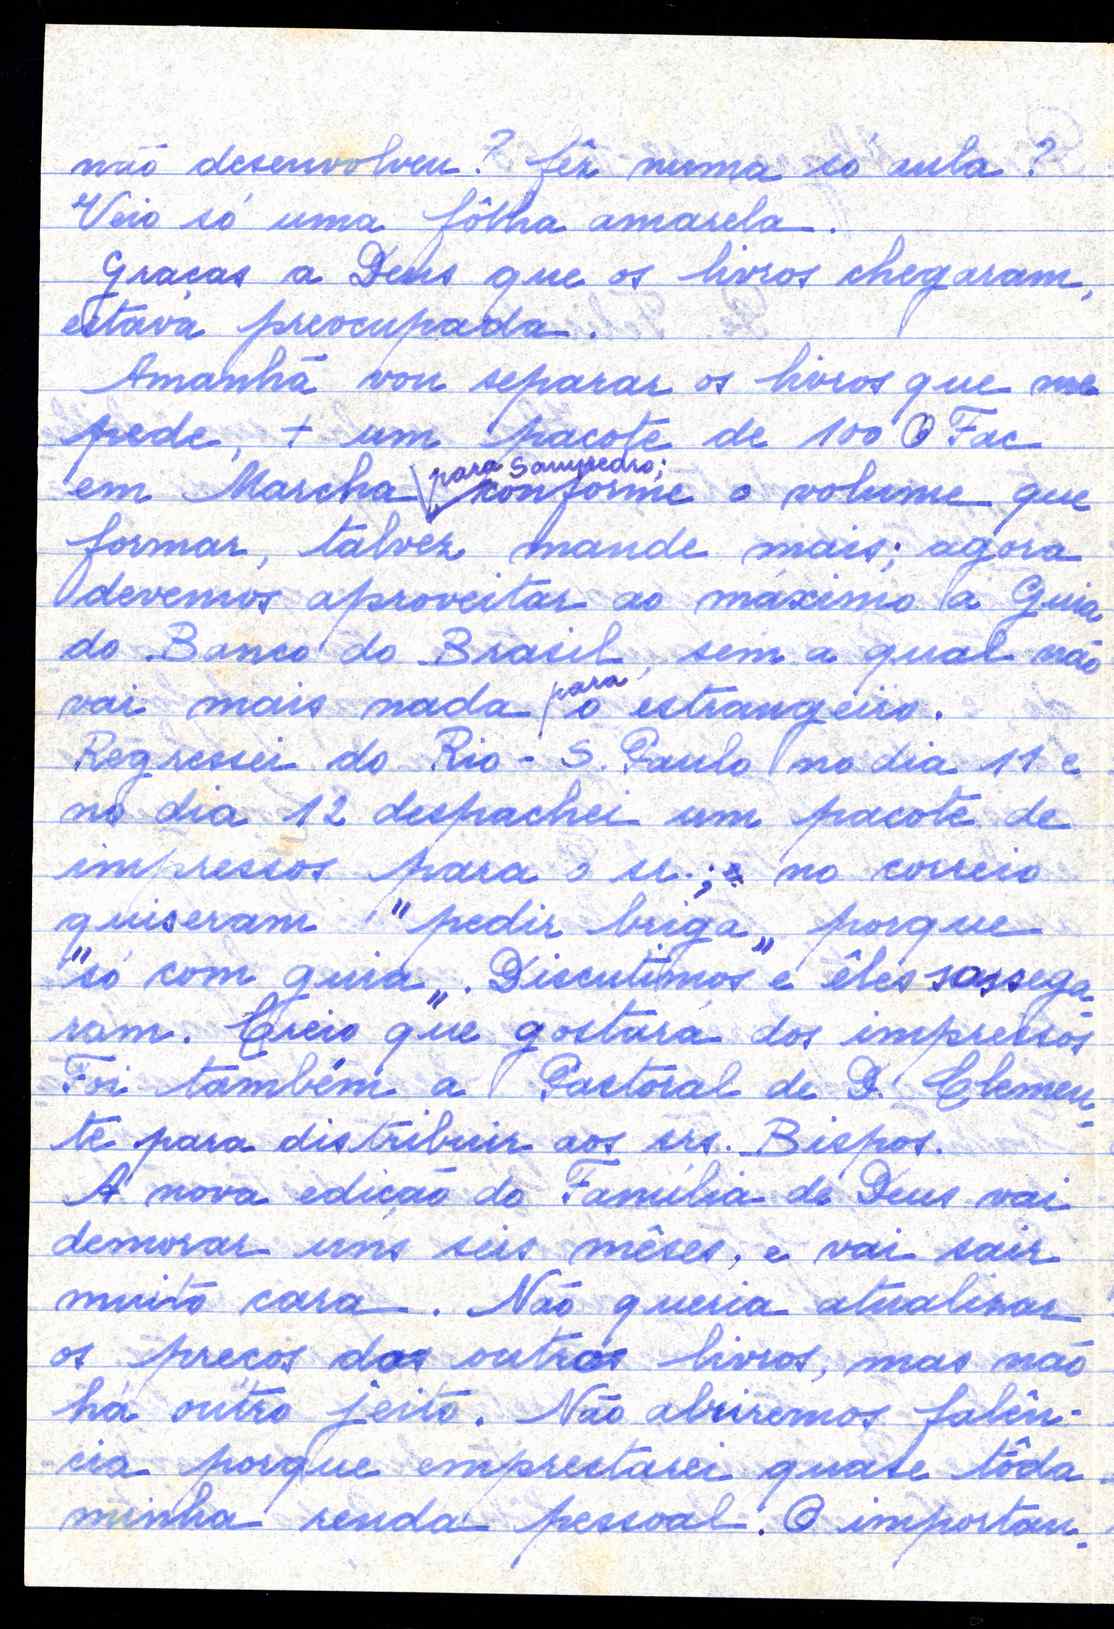 não desenvolveu? fêz numa só aula?
Veio só uma fôlha amarela.
Graças a Deus que os livros chegaram,
estava preocupada.
Amanhã vou separar os livros que me
pede, + um pacote de 100 O Fac
em Marcha para Sampedro; conforme o volume que
formar, talvez mande mais; agora
devemos aproveitar ao máximo a Guia
do Banco do Brasil, sem a qual não
vai mais nada para o estrangeiro.
Regressei do Rio - S. Paulo no dia 11 e
no dia 12 despachei um pacote de
impressos para o sr.; e no correio
quiseram "pedir briga" porque
"só com guia". Discutimos e êles sossega
ram. Creio que gostará dos impressos
Foi também a Pastoral de D. Clemen-
te para distribuir aos srs. Bispos.
A nova edição do Família de Deus vai
demorar uns seis mêses, e vai sair
muito cara. Não queria atualizar
os preços dos outros livros, mas não
há outro jeito. Não abriremos falên-
cia porque emprestarei quase tôda
minha renda pessoal. O importan-